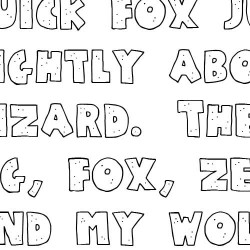 UICK FOX JU
IGHTLY ABO
IZARD. THE
G, FOX, ZE
ND MY WO